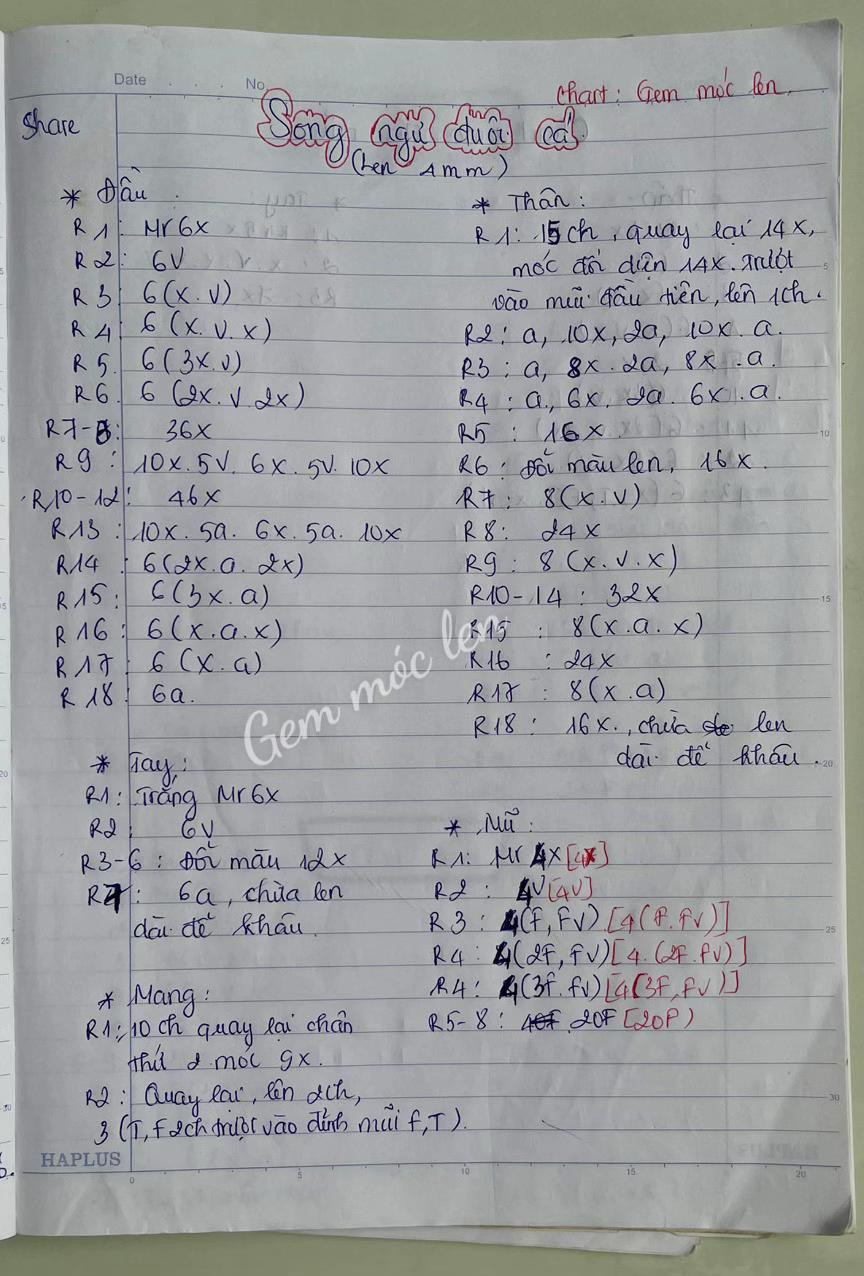 Date No
chart: Gem móc len
Share
Song ngư đuôi cá
(len 4mm)
* Đầu
R1: Mr 6x
R2: 6V
R3: 6(x.v)
R4: 6(x.v.x)
R5. 6(3x.v)
R6. 6(2x.v.2x)
R7-8: 36x
R9: 10x.5V.6x.5V.10x
R10-12: 46x
R13: 10x.5a.6x.5a.10x
R14: 6(2x.a.2x)
R15: 6(3x.a)
R16: 6(x.a.x)
R17: 6(x.a)
R18: 6a.
* Thân:
R1: 15ch, quay lại 14x,
móc đối diện 14x. trượt
vào mũi đầu tiên, lên 1ch.
R2: a, 10x, 2a, 10x.a.
R3: a, 8x.2a, 8x.a.
R4: a, 6x, 2a.6x.a.
R5: 16x.
R6: Đổi màu len, 16x.
R7: 8(x.v)
R8: 24x
R9: 8(x.v.x)
R10-14: 32x
R15: 8(x.a.x)
R16: 24x
R17: 8(x.a)
R18: 16x., chừa len
dài để khâu.
* Tay:
R1: Trắng Mr 6x
R2: 6V
R3-6: Đổi màu 12x
R7: 6a, chừa len
dài để khâu.
* Mang:
R1: 10ch quay lại chân
thứ 2 móc 9x.
R2: Quay lại, lên 2ch,
3(T, F 2ch trượt vào đỉnh mũi F,T).
* Mũ:
R1: Mr 4x [4x]
R2: 4V [4V]
R3: 4(F, FV) [4(F.FV)]
R4: 4(2F, FV) [4.(2F.FV)]
R4: 4(3F.FV) [4(3F,FV)]
R5-8: 20F [20F)
Gem móc len
HAPLUS
0 5 10 15 20
5
10
15
20
25
30